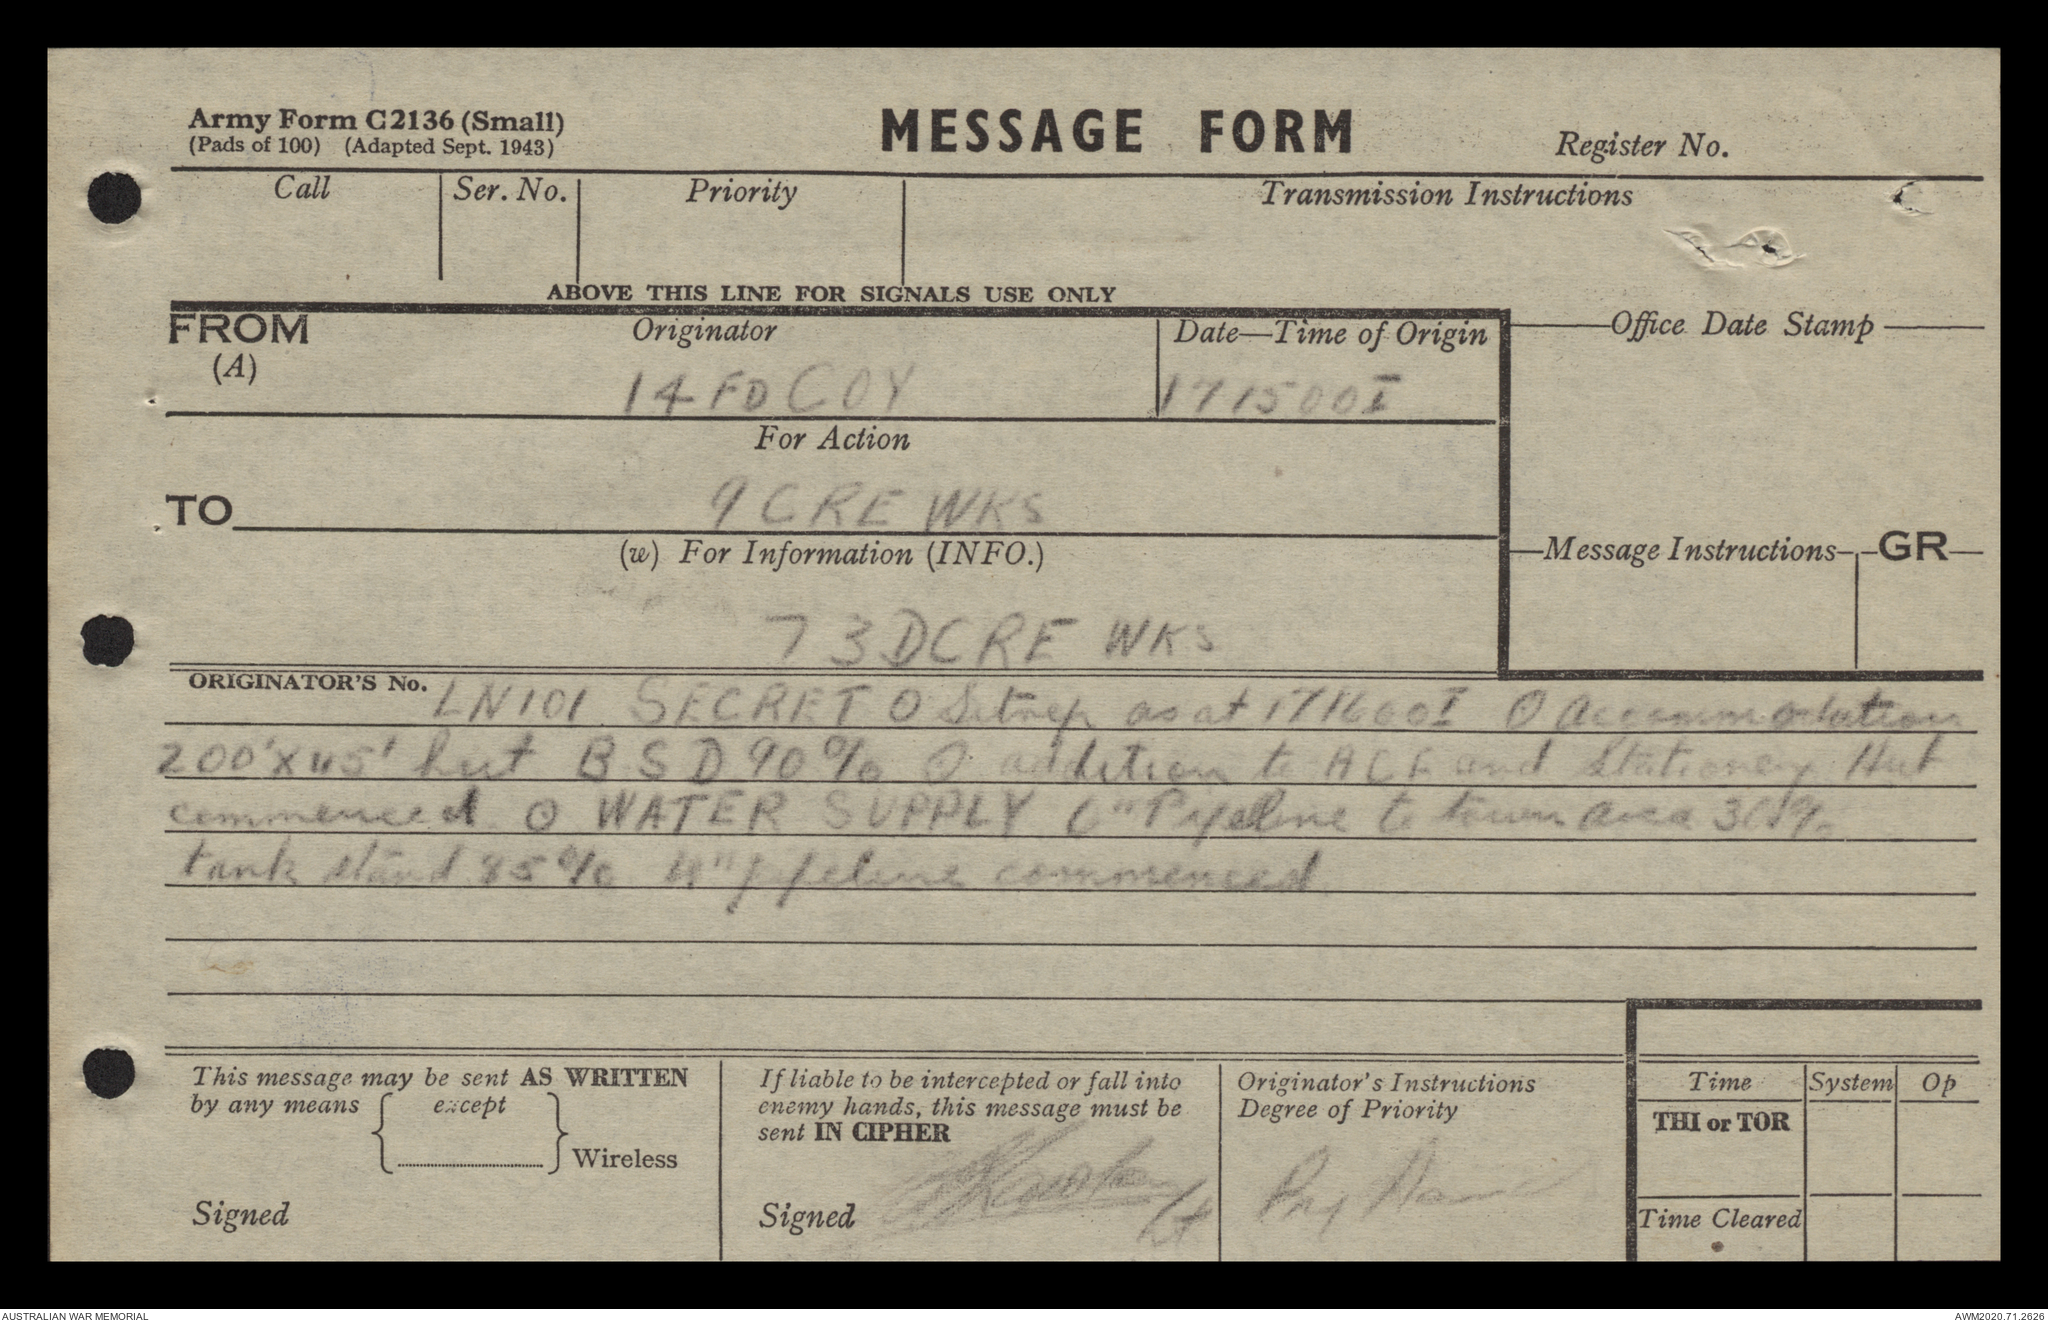 Army Form C2136 (Small)
(Pads of 100) (Adapted Sept. 1943)
MESSAGE FORM
Register No.
Call
Ser. No.
Priority
Transmission Instructions
ABOVE THIS LINE FOR SIGNALS USE ONLY
FROM
(A)
Originator
Date—Time of Origin
Office Date Stamp
14 FD COY
171500I
For Action
TO
9 CRE WKS
(w) For Information (INFO.)
Message Instructions
GR
73 DCRE WKS
ORIGINATOR'S No.
LN101 SECRET O Sitrep as at 171600I O Accommodation
200'X45' hut BSD 90% O addition to and Stationery Hut
commenced O WATER SUPPLY 6" Pipeline to town area
tank stand 85% 4" pipeline commenced
This message may be sent AS WRITTEN
by any means { except } Wireless
Signed
If liable to be intercepted or fall into
enemy hands, this message must be
sent IN CIPHER
Signed
Lt
Originator's Instructions
Degree of Priority
Time
System
Op
THI or TOR
Time Cleared
AUSTRALIAN WAR MEMORIAL
AWM2020.71.2626